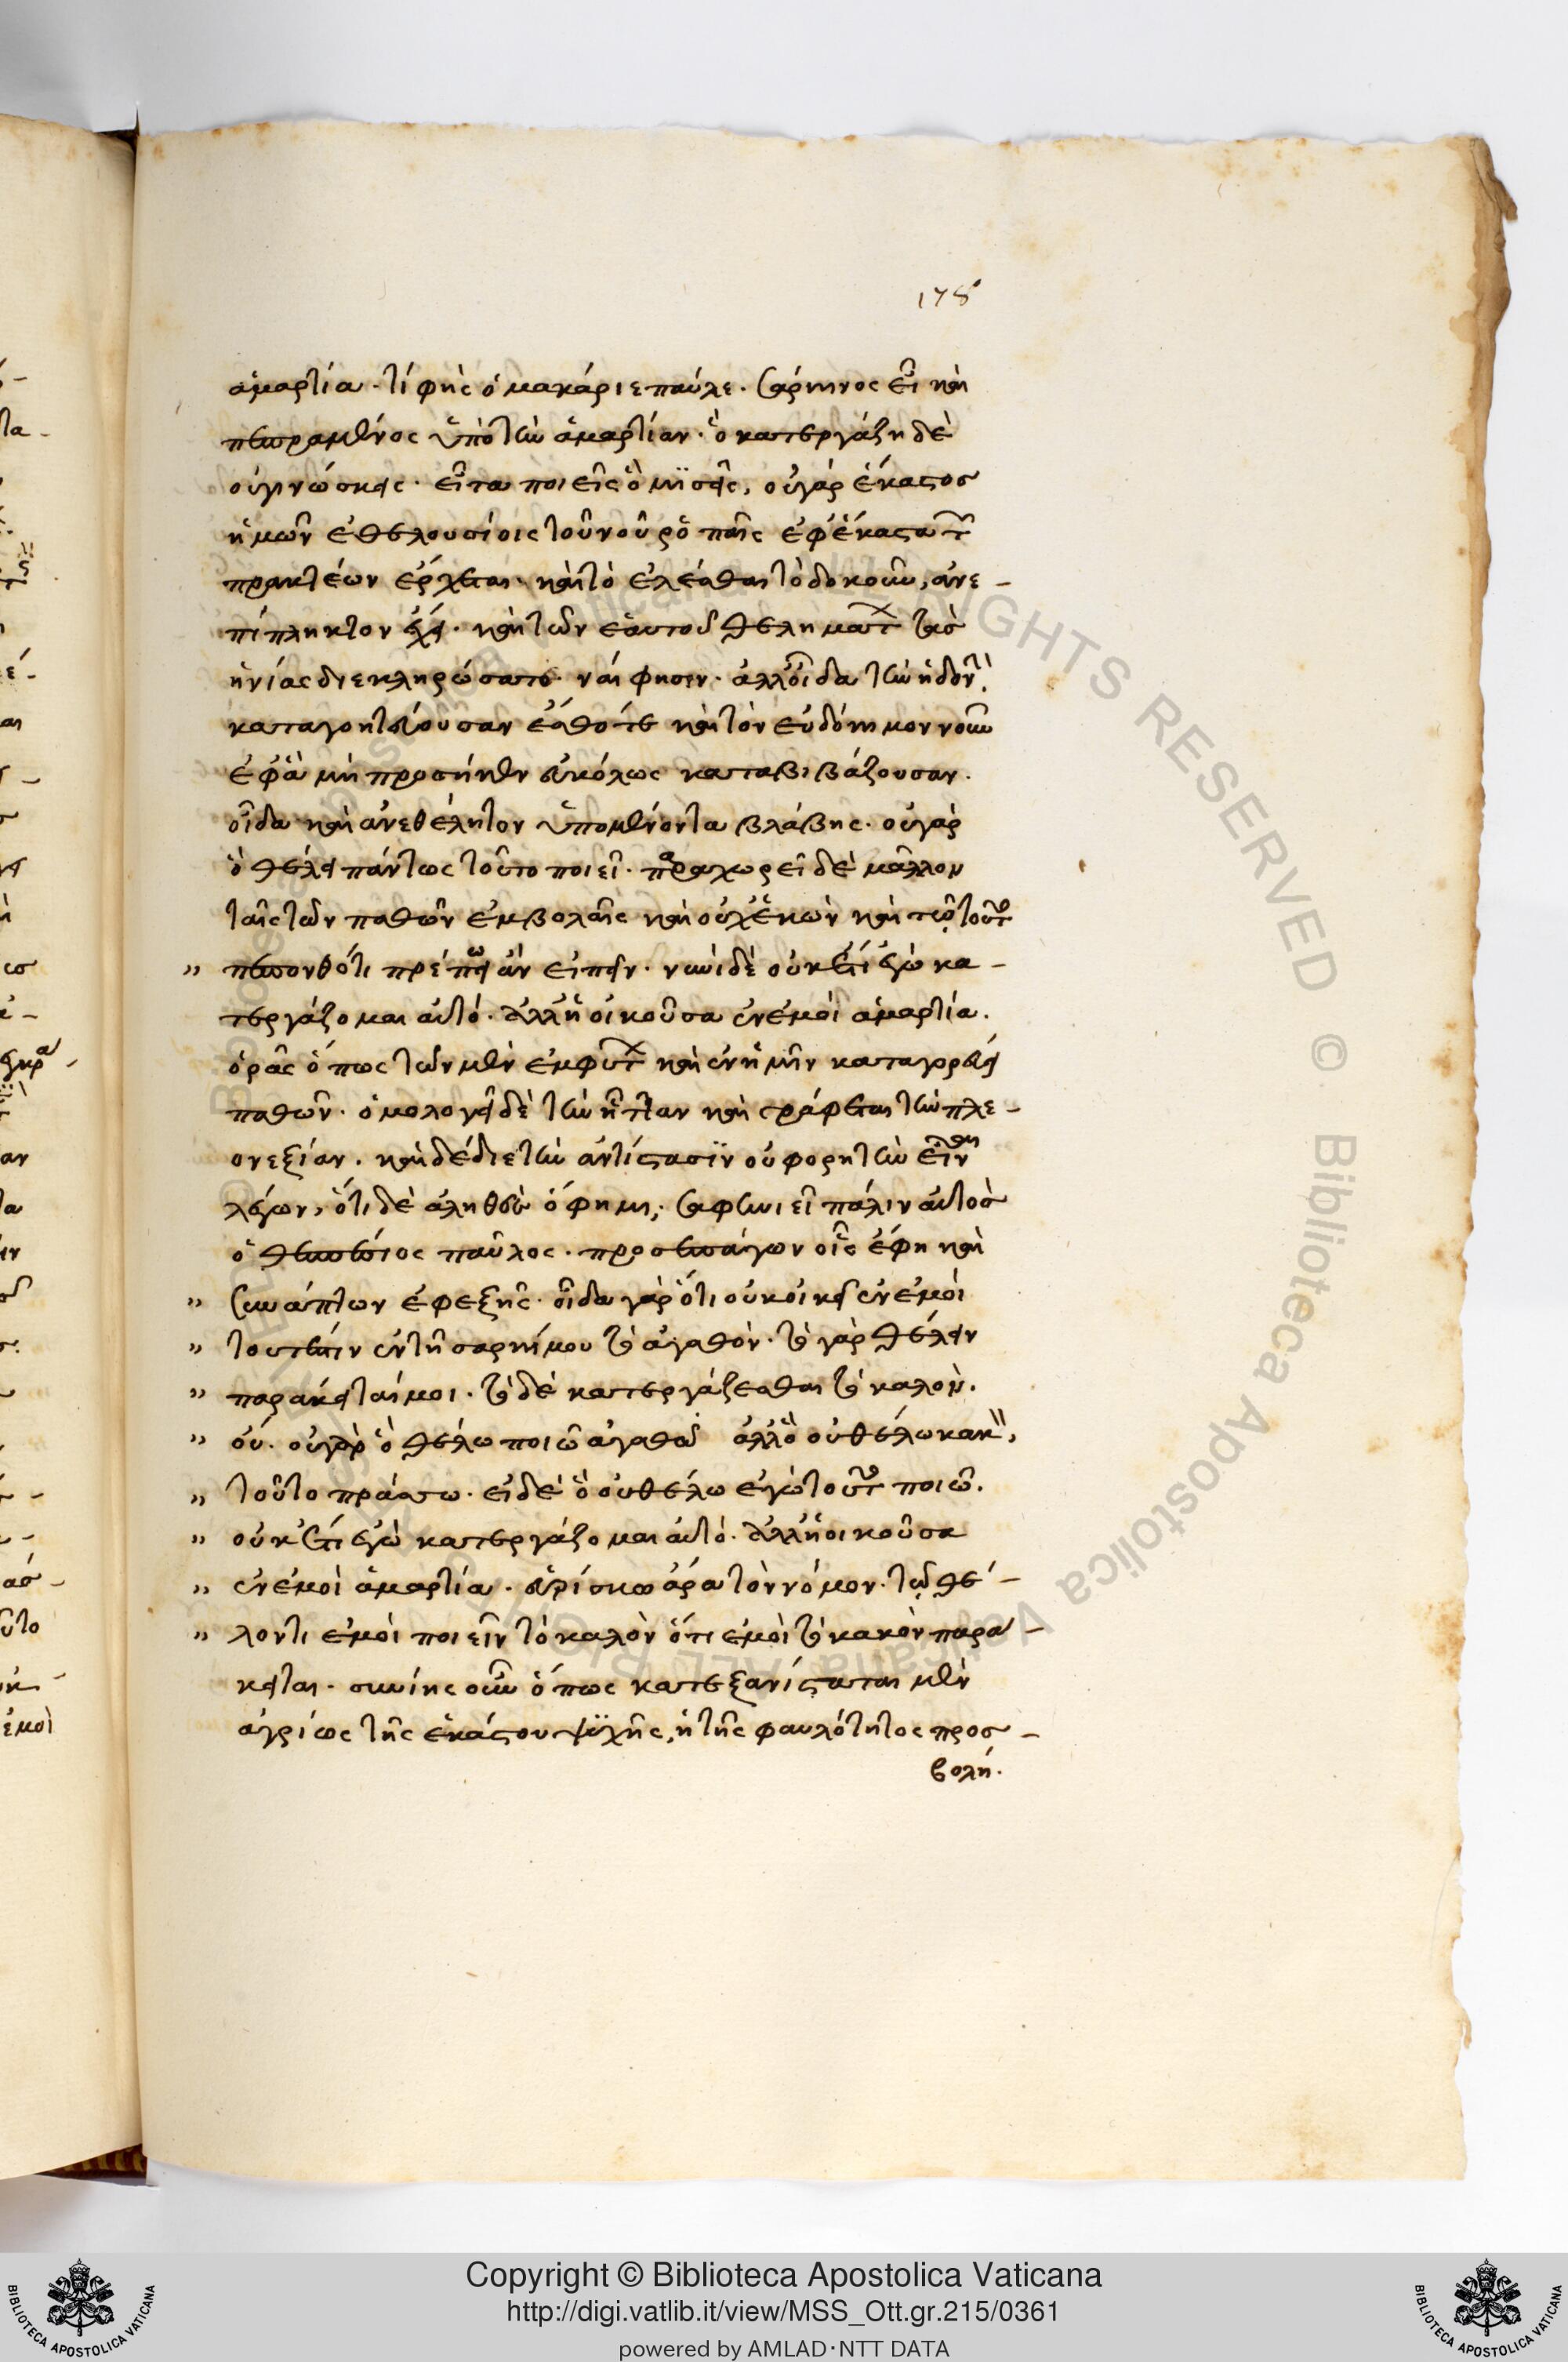 178
ἁμαρτία. τί φὴς ὁ μακάριε παῦλε. σάρκινος εἶ καὶ
πεπραμένος ὑπὸ τὴν ἁμαρτίαν. ὃ κατεργάζη δὲ
οὐ γινώσκεις. εἶτα ποιεῖς ὃ μϊσεῖς, οὐ γὰρ ἕκαστος
ἡμῶν ἐθελουσίοις τοῦ νοῦ ῥοπαῖς ἐφ' ἕκαστα τῶν
πρακτέων ἔρχεται. καὶ τὸ ἑλέσθαι τὸ δοκοῦν, ἀνε-
πίπληκτον ἔχει. καὶ τῶν ἑαυτοῦ θελημάτων τὰς
ἡνίας διεκληρώσατο. ναί φησιν. ἀλλ' οἶδα τὴν ἡδονὴν
καταγοητεύουσαν ἔσθ' ὅτε καὶ τὸν εὐδόκιμον νοῦν
ἐφ' ἃ μὴ προσῆκεν εὐκόλως καταβιβάζουσαν.
οἶδα καὶ ἀνεθέλητον ὑπομένοντα βλάβης. οὐ γὰρ
ὃ θέλει πάντως τοῦτο ποιεῖ. παραχωρεῖ δὲ μᾶλλον
ταῖς τῶν παθῶν ἐμβολαῖς καὶ οὐχ ἑκὼν καὶ τῷ τοῦτο
" πεπονθότι πρέπως ἂν εἰπεῖν. νυνὶ δὲ οὐκέτι ἐγὼ κα-
τεργάζομαι αὐτό. ἀλλ' ἡ οἰκοῦσα ἐν ἐμοὶ ἁμαρτία.
ὁρᾶς ὅπως τῶν μὲν ἐμφύτων καὶ ἐν ἡμῖν καταγορεύει
παθῶν. ὁμολογεῖ δὲ τὴν ἧτταν καὶ γράφεται τὴν πλε-
ονεξίαν. καὶ δέδιε τὴν ἀντίστασϊν οὐ φορητὴν εἶναι
λέγων, ὅτι δὲ ἀληθὲς ὅ φημι, σαφηνιεῖ πάλιν αὐτὸς
ὁ θεσπέσιος παῦλος. προσεπάγων οἷς ἔφη καὶ
" συνάπτων ἐφεξῆς. οἶδα γὰρ ὅτι οὐκ οἰκεῖ ἐν ἐμοὶ
" τουτέστιν ἐν τῆ σαρκί μου τὸ ἀγαθόν. τὸ γὰρ θέλειν
" παράκειταί μοι. τὸ δὲ κατεργάζεσθαι τὸ καλὸν.
" οὐ. οὐ γὰρ ὃ θέλω ποιῶ ἀγαθόν ἀλλ' ὃ οὐ θέλω κακὸν,
" τοῦτο πράσσω. εἰ δὲ ὃ οὐ θέλω ἐγὼ τοῦτο ποιῶ.
" οὐκέτι ἐγὼ κατεργάζομαι αὐτό. ἀλλ' ἡ οἰκοῦσα
" ἐν ἐμοὶ ἁμαρτία. εὑρίσκω ἄρα τὸν νόμον. τῷ θέ-
" λοντι ἐμοὶ ποιεῖν τὸ καλὸν ὅτι ἐμοὶ τὸ κακὸν παρά-
κειται. συνίης οὖν ὅπως κατεξανίσταται μὲν
ἀγρίως τῆς ἑκάστου ψϋχῆς, ἡ τῆς φαυλότητος προσ-
βολή.
Copyright © Biblioteca Apostolica Vaticana
http://digi.vatlib.it/view/MSS_Ott.gr.215/0361
powered by AMLAD·NTT DATA